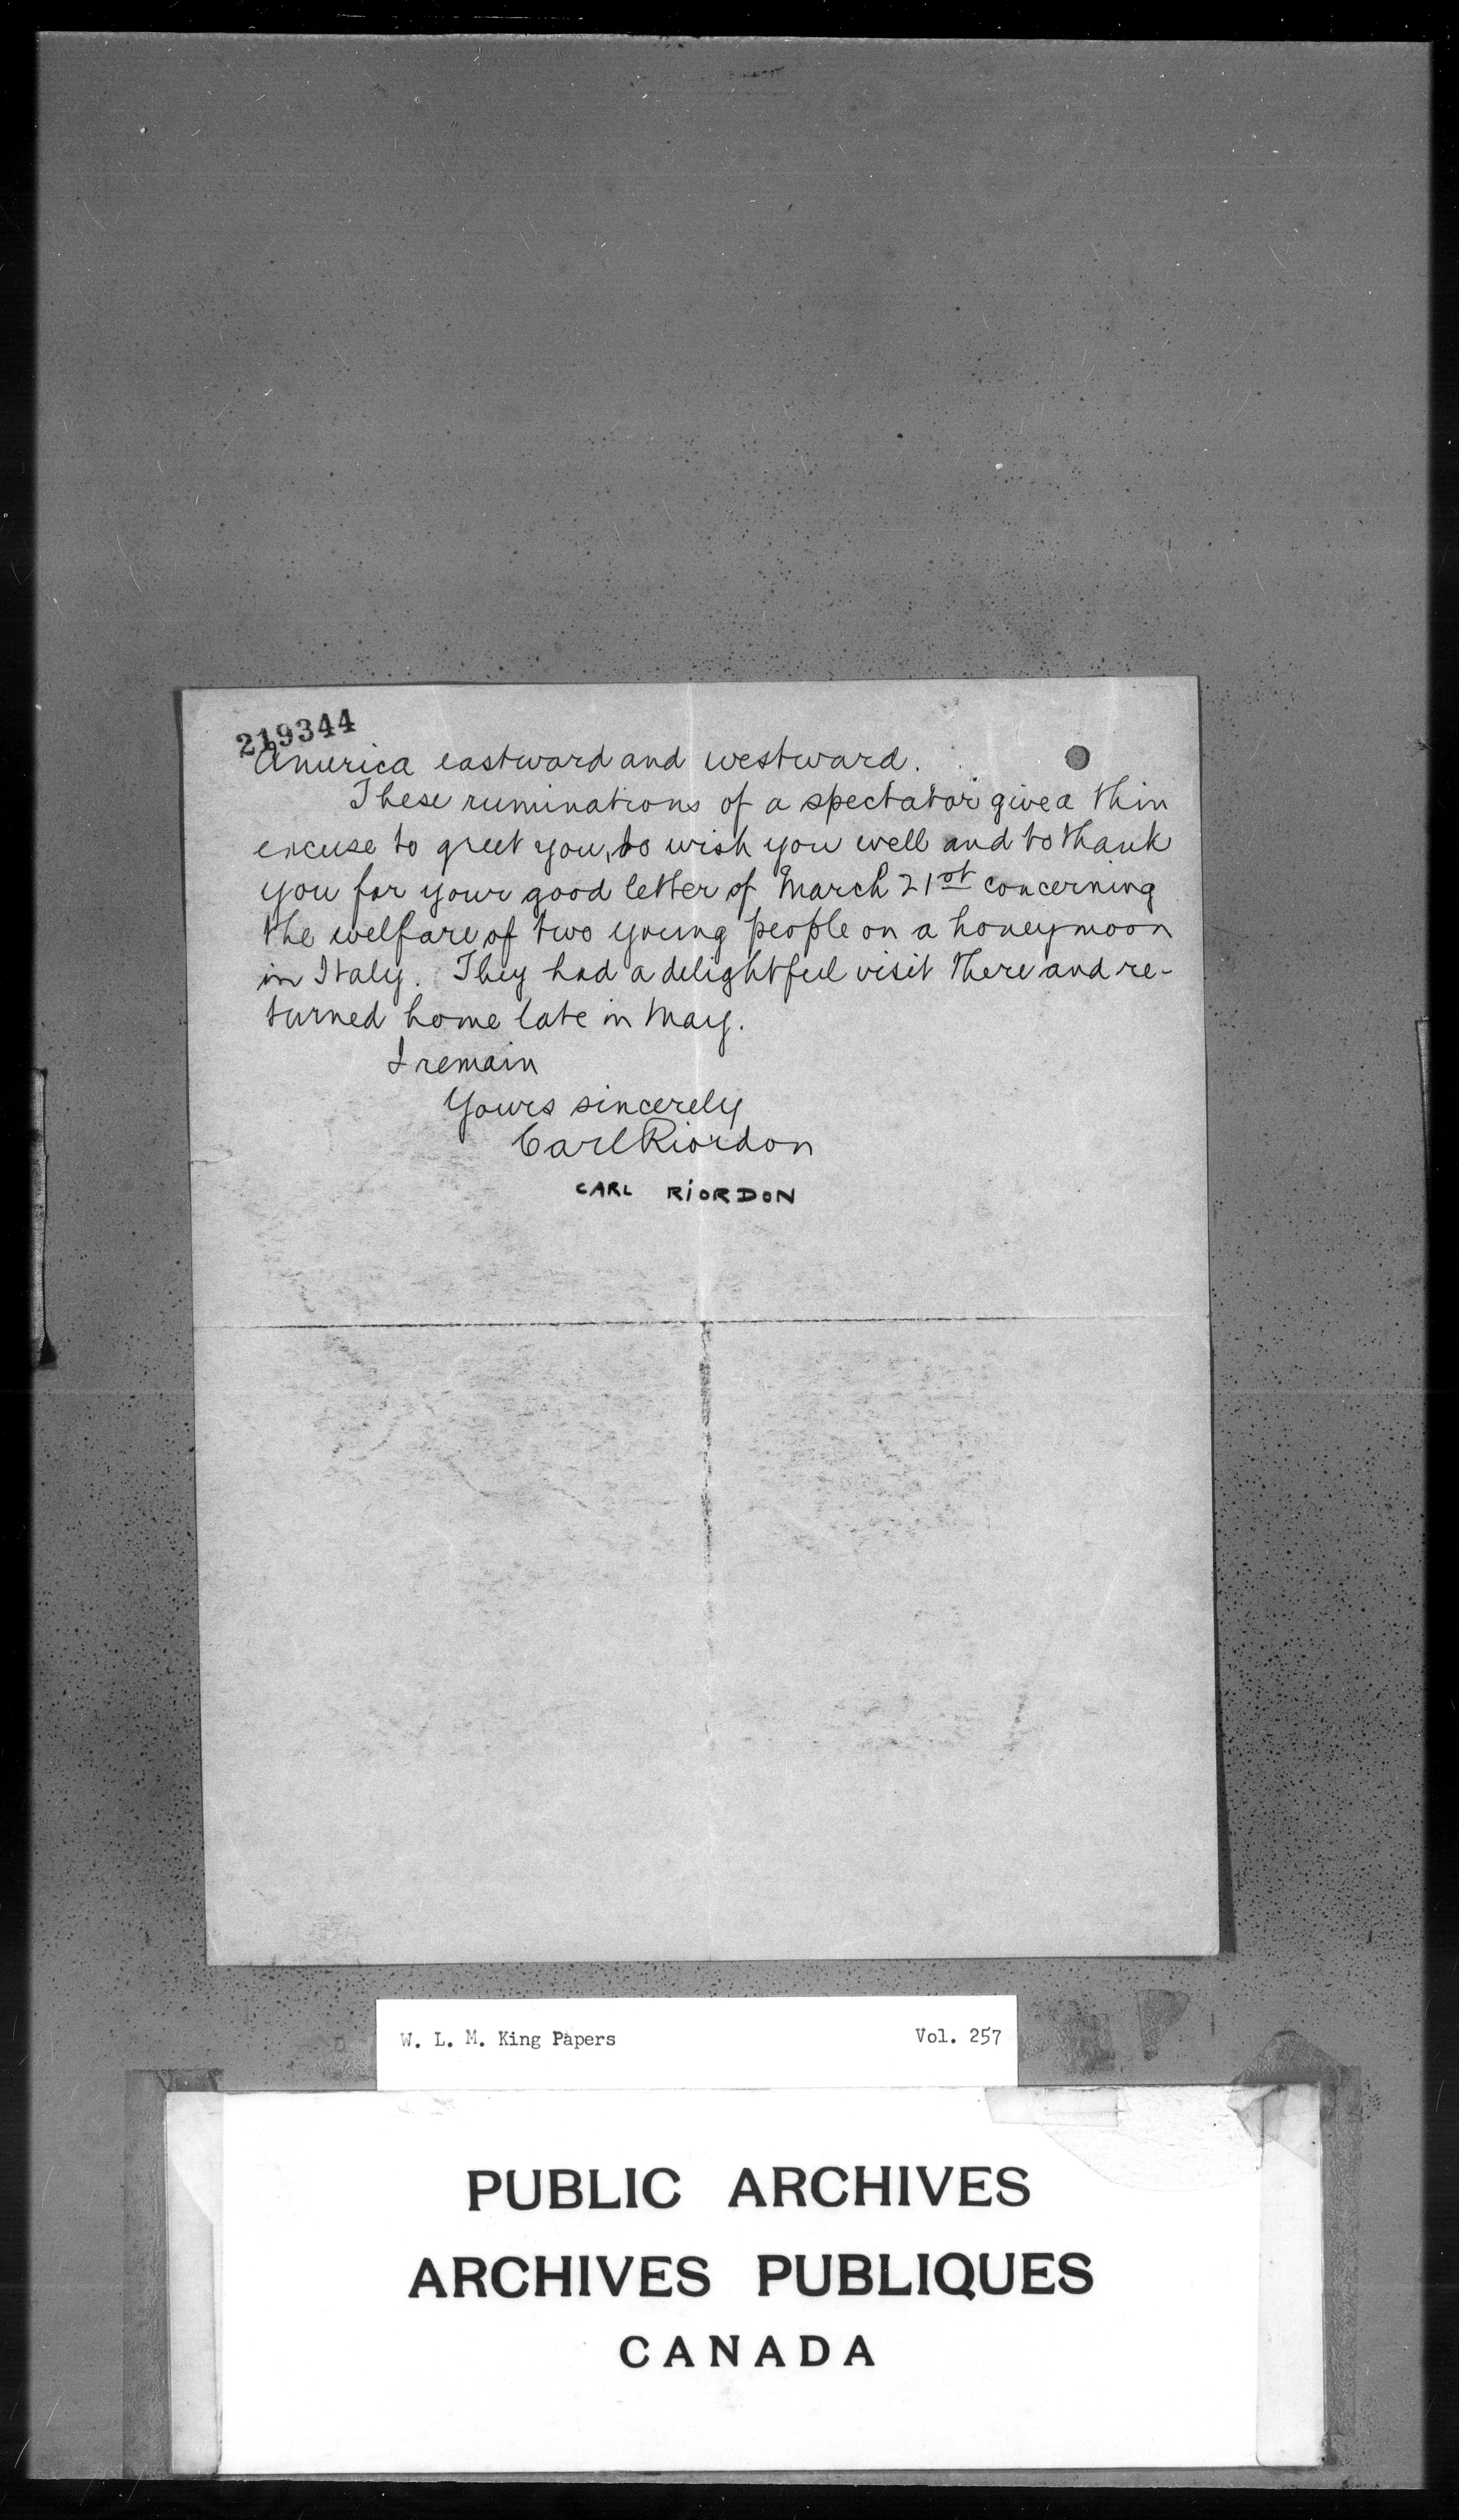 219344
America eastward and westward.
These ruminations of a spectator give a thin
excuse to greet you, to wish you well and to thank
you for your good letter of March 21st concerning
the welfare of two young people on a honeymoon
in Italy. They had a delightful visit there and re-
turned home late in May.
I remain
Yours sincerely
Carl Riordon
CARL RIORDON
W. L. M. King Papers Vol. 257
PUBLIC ARCHIVES
ARCHIVES PUBLIQUES
CANADA